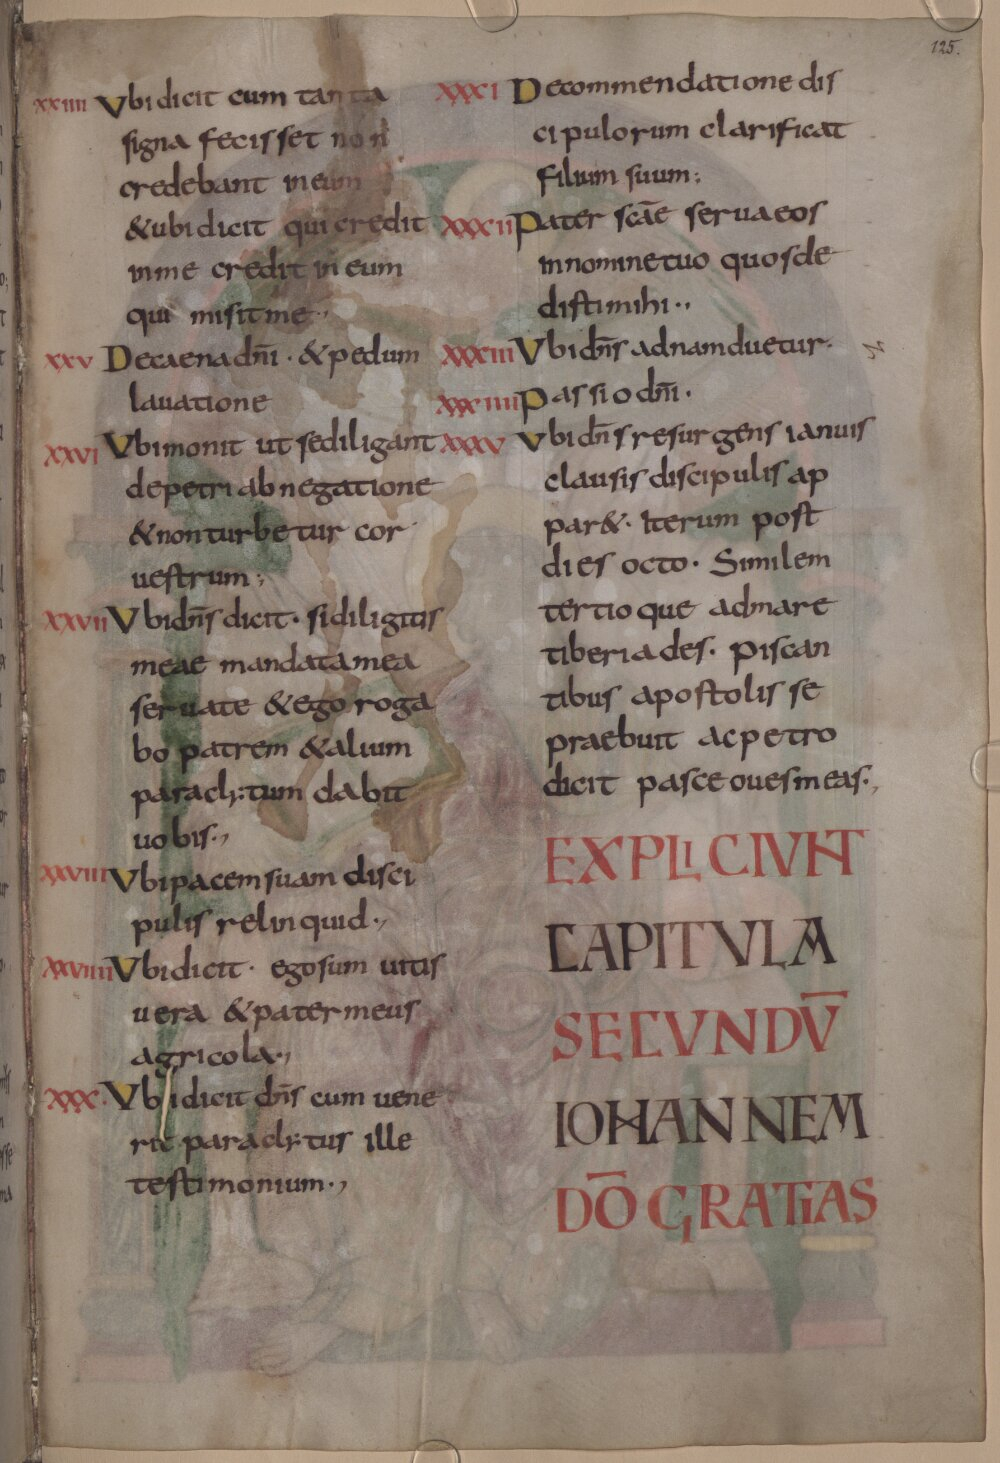 125.
xxiiii Vbi dicit cum tanta
signa fecisset non
credebant in eum
&ubi dicit qui credit
in me credit in eum
qui misit me·,
xxv De caena dn̄i · & pedum
lauatione
xxvi Vbi monit ut se diligant
de petri abnegatione
& non turbetur cor
uestrum;
xxvii Vbi dn̄s dicit · si diligitis
meae mandata mea
seruate & ego roga
bo patrem & alium
paraclitum dabit
uobis·,
xxviii Vbi pacem suam disci
pulis relinquid·,
xxviiii Vbi dicit · ego sum uitis
uera & pater meus
agricola·,
xxx· Vbi dicit dn̄s cum uene
rit paraclitus ille
testimonium·,
xxxi De commendatione dis
cipulorum clarificat
filium suum;
xxxii Pater scāe serua eos
in nomine tuo quos de
disti mihi··
xxxiii Vbi dn̄s ad nam duetur·
xxxiiii Passio dn̄i·
xxxv Vbi dn̄s resurgens ianuis
clausis discipulis ap
par&· Iterum post
dies octo· Similem
tertio que ad mare
tiberiades· piscan
tibus apostolis se
praebuit ac petro
dicit pasce oues meas·,
EXPLICIVNT
CAPITVLA
SECVNDV̄
IOHANNEM
DŌ GRATIAS